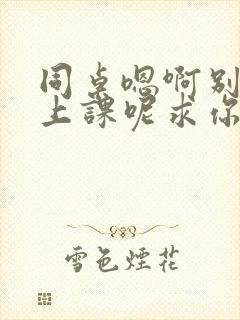 同桌嗯啊别
上課呢求你
雪色煙花